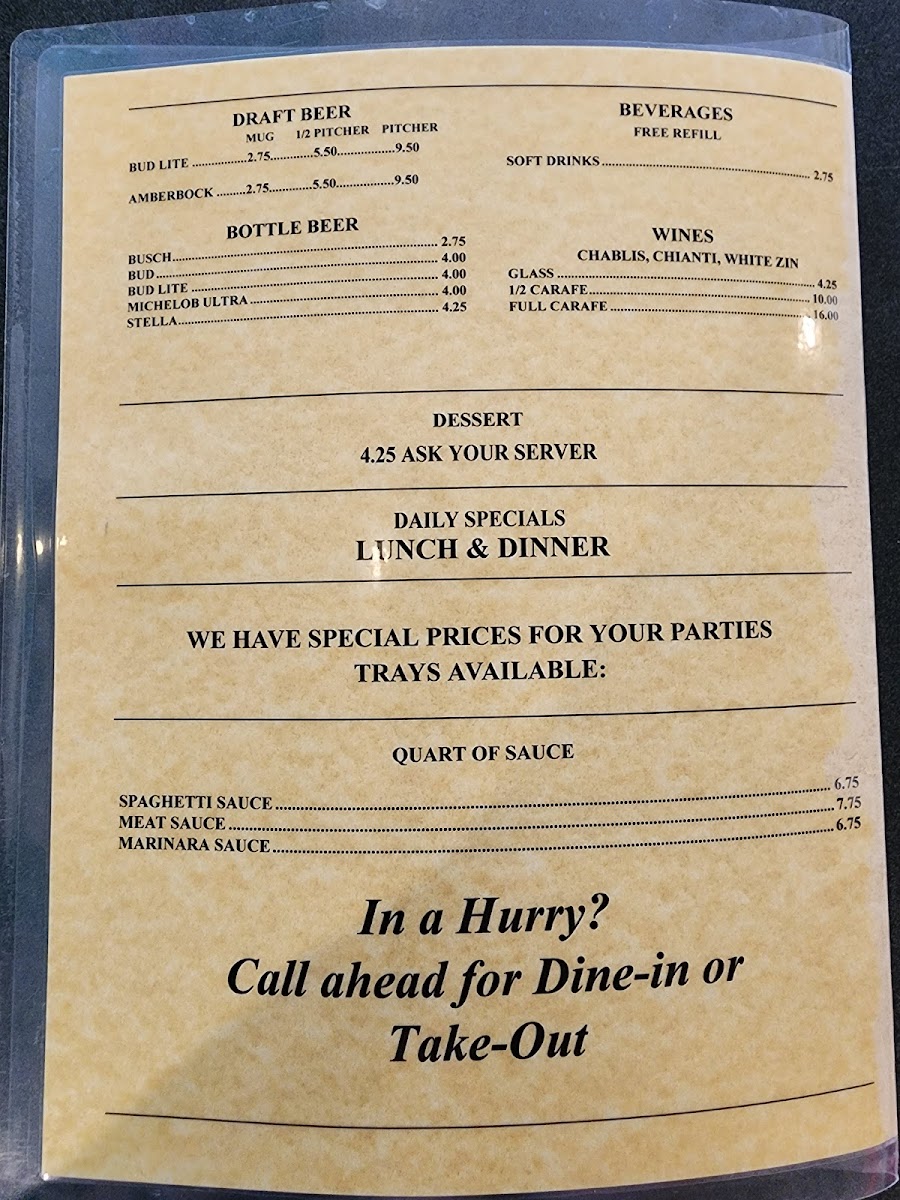 DRAFT BEER
MUG 1/2 PITCHER PITCHER
BUD LITE ..............2.75.............5.50................9.50
AMBERBOCK ........2.75............5.50................9.50
BOTTLE BEER
BUSCH........................................................ 2.75
BUD........................................................ 4.00
BUD LITE ........................................................ 4.00
MICHELOB ULTRA........................................................ 4.00
STELLA........................................................ 4.25
BEVERAGES
FREE REFILL
SOFT DRINKS........................................................ 2.75
WINES
CHABLIS, CHIANTI, WHITE ZIN
GLASS ........................................................ 4.25
1/2 CARAFE........................................................ 10.00
FULL CARAFE ........................................................ 16.00
DESSERT
4.25 ASK YOUR SERVER
DAILY SPECIALS
LUNCH & DINNER
WE HAVE SPECIAL PRICES FOR YOUR PARTIES
TRAYS AVAILABLE:
QUART OF SAUCE
SPAGHETTI SAUCE........................................................ 6.75
MEAT SAUCE ........................................................ 7.75
MARINARA SAUCE........................................................ 6.75
In a Hurry?
Call ahead for Dine-in or
Take-Out